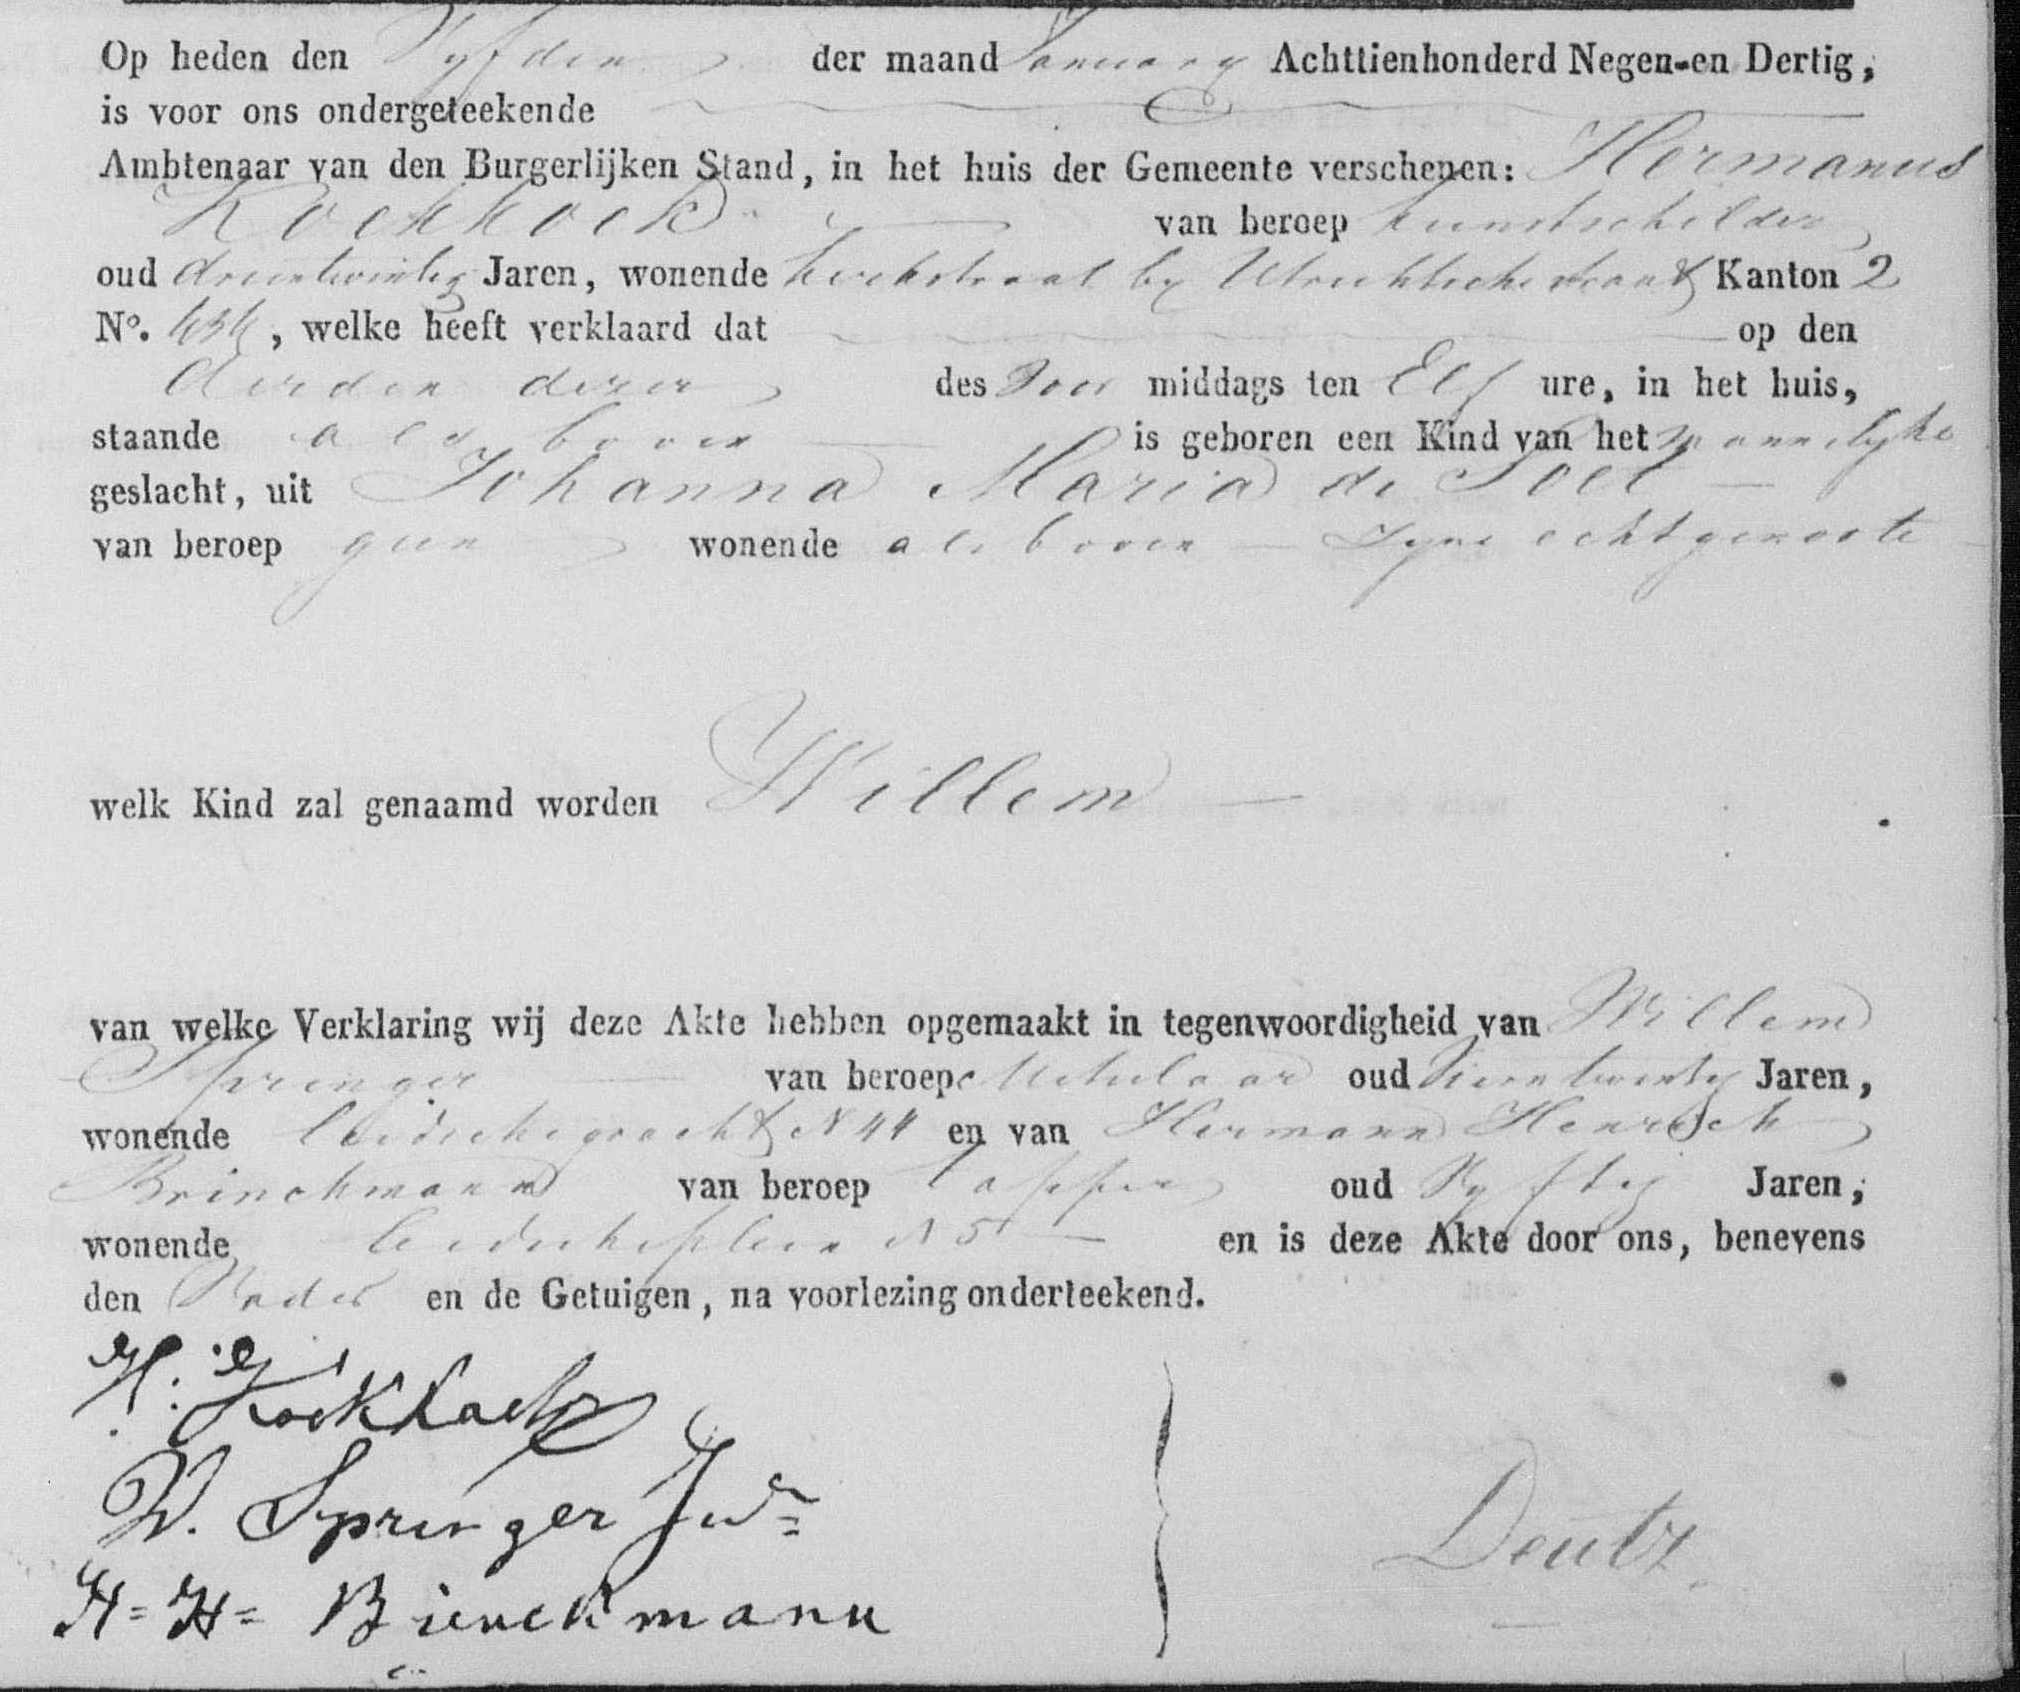 Op heden den Vyfden der maand January Achttienhonderd Negen-en Dertig,
is voor ons ondergeteekende
Ambtenaar van den Burgerlijken Stand, in het huis der Gemeente verschenen: Hermanus
Koekkoek van beroep kunstschilder
oud drientwintig Jaren, wonende Kerkstraat by Utrechtschestraat Kanton 2
No. , welke heeft verklaard dat op den
derden dezer des Voor middags ten Elf ure, in het huis,
staande als boven is geboren een Kind van het mannelyke
geslacht, uit Johanna Maria de
van beroep geen wonende als boven Zyne echtgenoote
welk Kind zal genaamd worden Willem .
van welke Verklaring wij deze Akte hebben opgemaakt in tegenwoordigheid van Willem
Springer van beroep Makelaar oud Jaren,
wonende Leidschegracht N 44 en van Hermann Henrich
Brinckmann van beroep Tapper oud Vyftig Jaren,
wonende Leidscheplein N 5 en is deze Akte door ons, benevens
den Vader en de Getuigen, na voorlezing onderteekend.
H. Koekkoek
W. Springer Jr
H=H= Brinckmann
Deutz